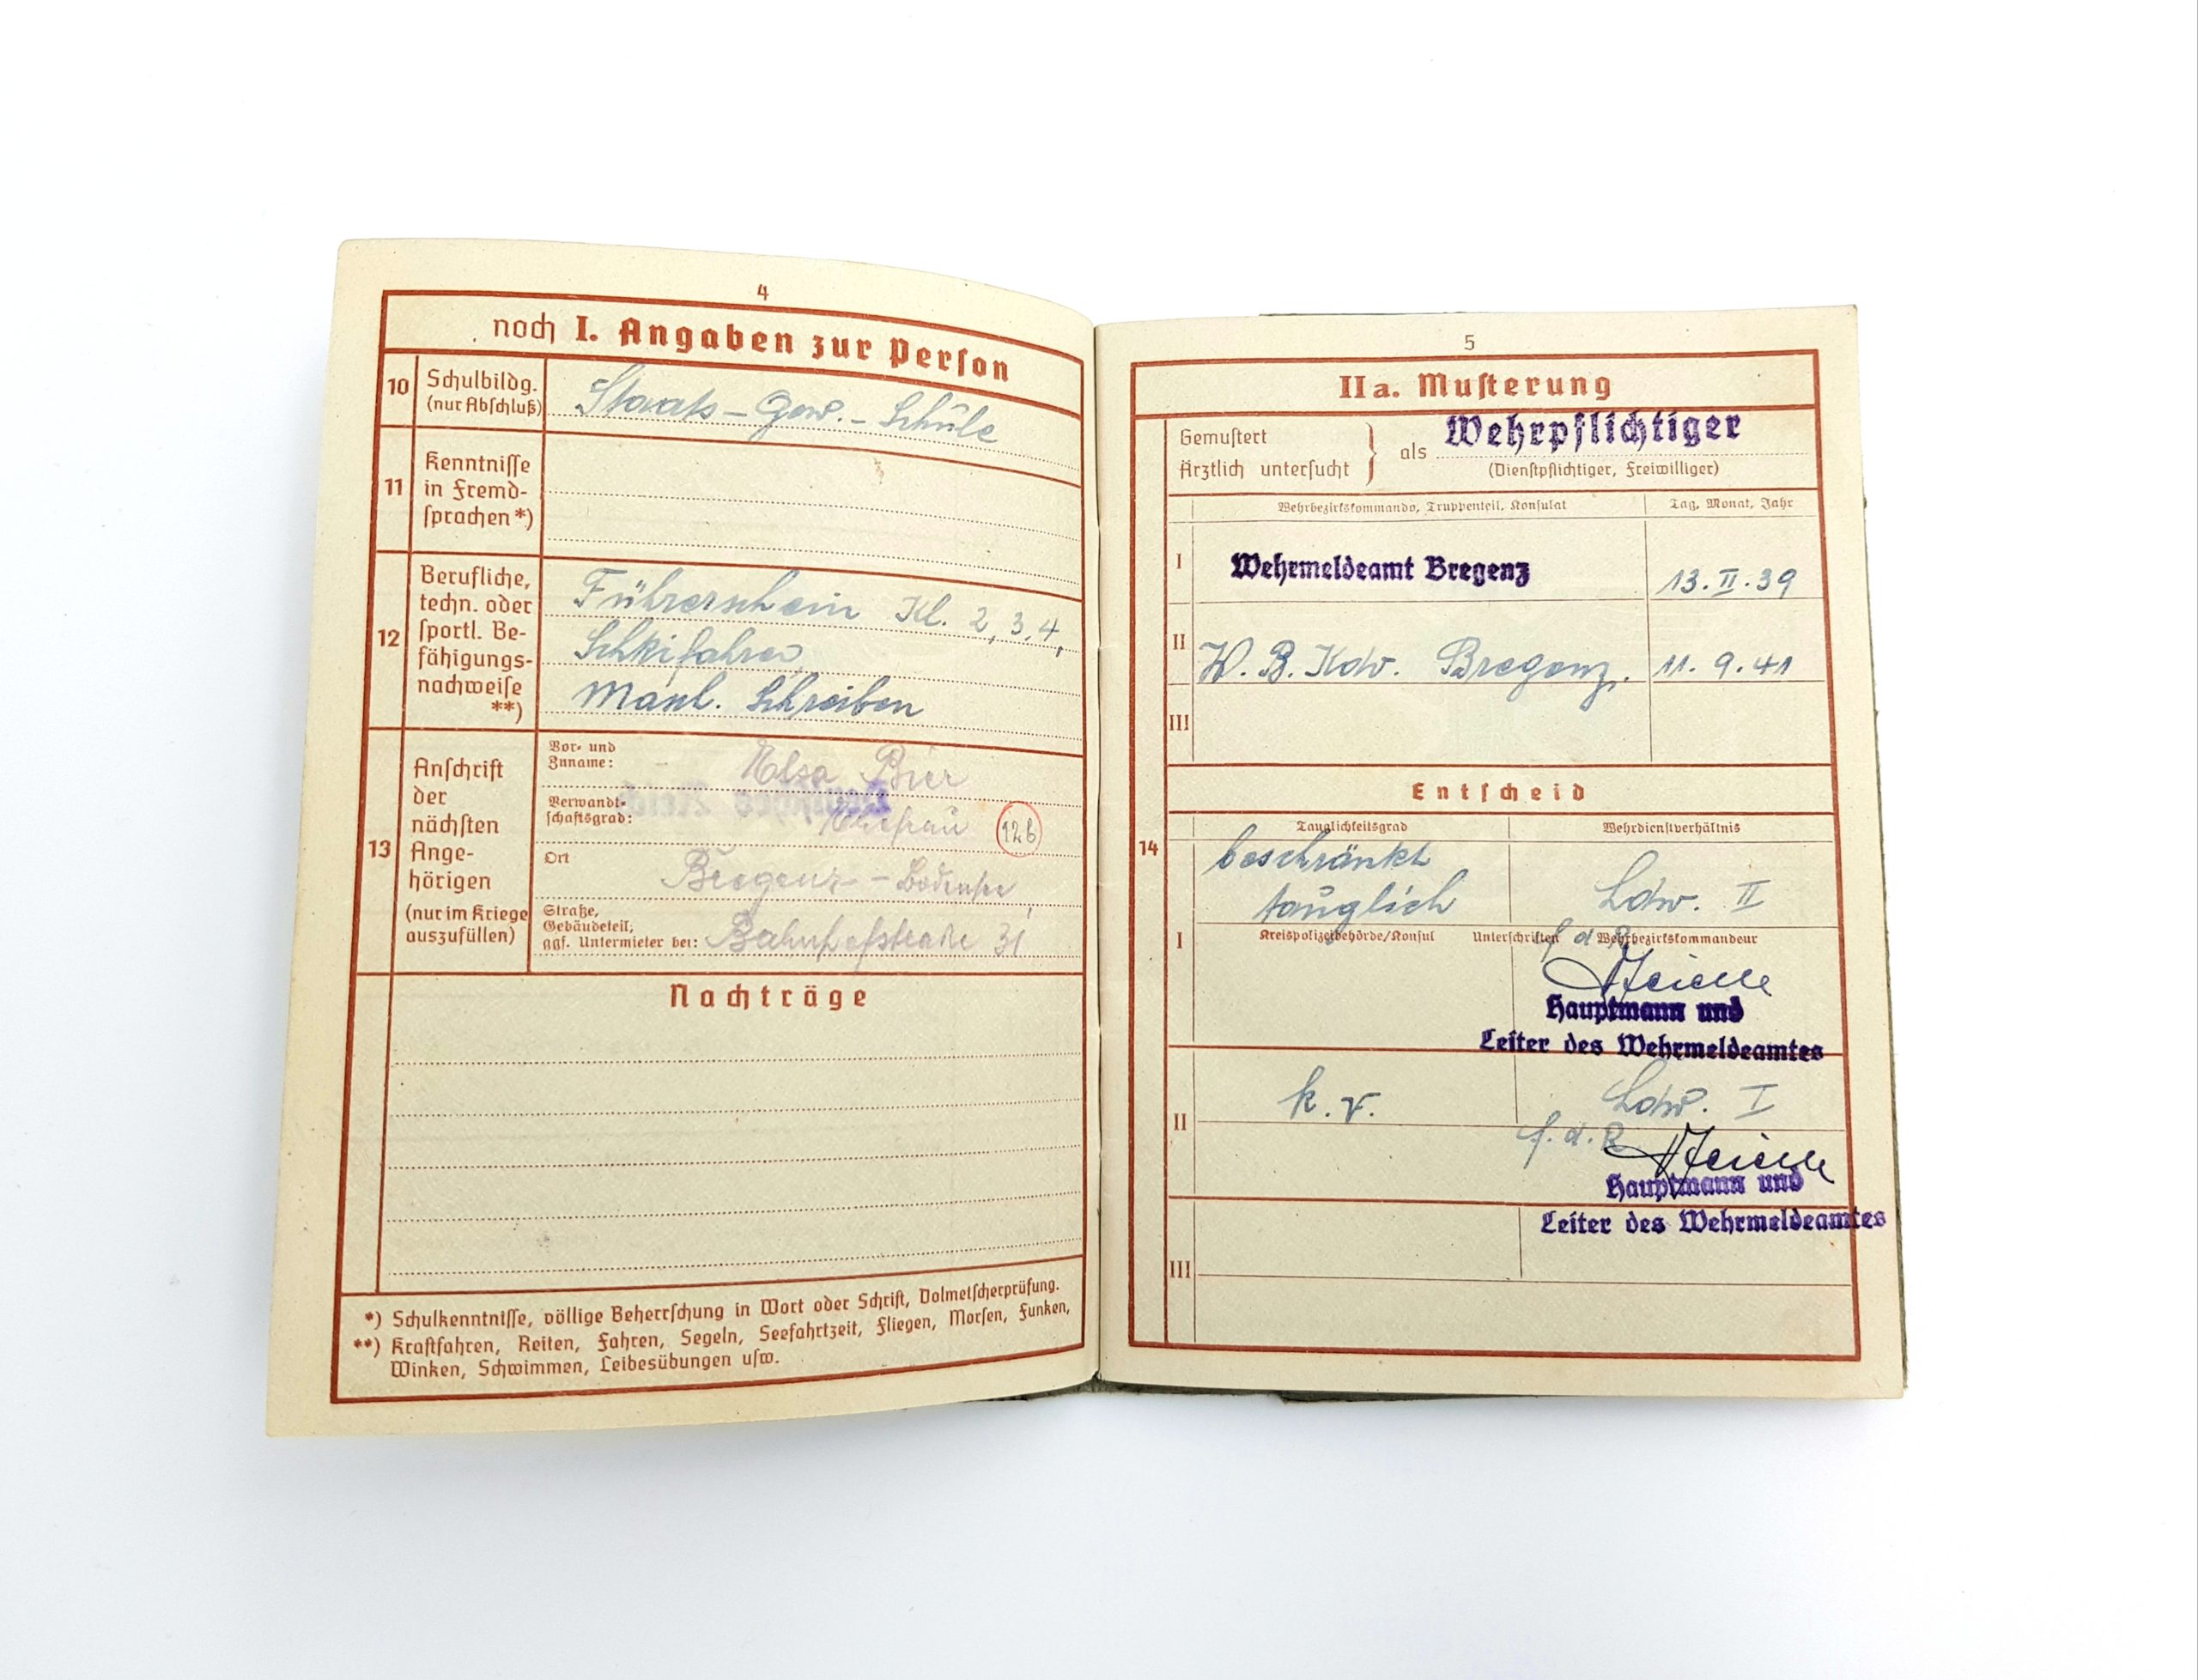 4
noch I. Angaben zur Person
10 Schulbildg.
(nur Abschluß)
Staats-Gew.-Schule
11 Kenntnisse
in Fremd-
sprachen *)
12 Berufliche,
techn. oder
sportl. Be-
fähigungs-
nachweise
**)
Führerschein Kl. 2, 3, 4,
Schkifahren,
Masch. Schreiben
13 Anschrift
der
nächsten
Ange-
hörigen
(nur im Kriege
auszufüllen)
Vor- und
Zuname:
Elsa Bier
Verwandt-
schaftsgrad:
Ehefrau 12b
Ort
Bregenz - Bodensee,
Straße,
Gebäudeteil,
ggf. Untermieter bei:
Bahnhofstraße 31
Nachträge
*) Schulkenntnisse, völlige Beherrschung in Wort oder Schrift, Dolmetscherprüfung.
**) Kraftfahren, Reiten, Fahren, Segeln, Seefahrtzeit, Fliegen, Morsen, Funken,
Winken, Schwimmen, Leibesübungen usw.
5
IIa. Musterung
Gemustert
Ärztlich untersucht
als Wehrpflichtiger
(Dienstpflichtiger, Freiwilliger)
Wehrbezirkskommando, Truppenteil, Konsulat Tag, Monat, Jahr
I Wehrmeldeamt Bregenz 13. II. 39
II W. B. Kdo. Bregenz. 11. 9. 41
III
Entscheid
14
Tauglichkeitsgrad Wehrdienstverhältnis
beschränkt
tauglich
Ldw. II
I Kreispolizeibehörde/Konsul Unterschriften Wehrbezirkskommandeur
f. d. R
Hauptmann und
Leiter des Wehrmeldeamtes
II k. v. Ldw. I
f. d. R
Hauptmann und
Leiter des Wehrmeldeamtes
III